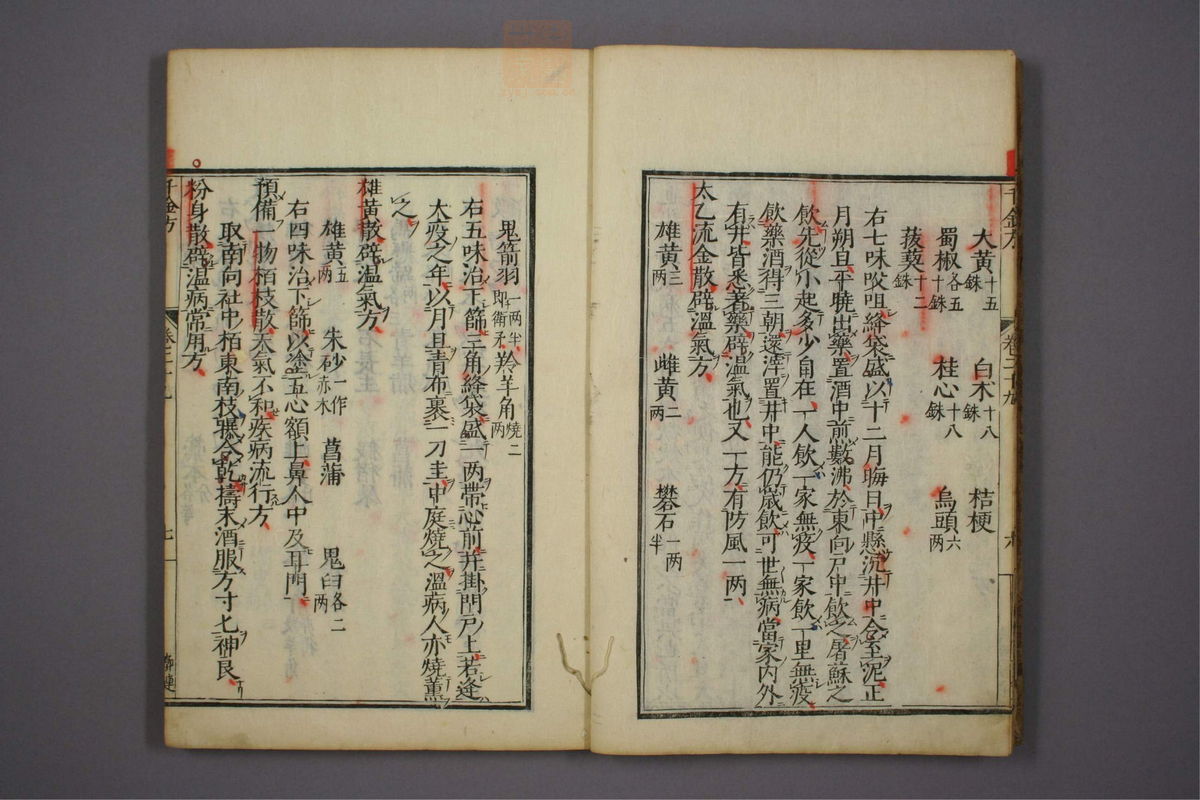 大黄十五銖 白朮十八銖 桔梗
蜀椒各五十銖 桂心十八銖 烏頭六兩
菝葜十二銖
右七味㕮咀絳袋盛以十二月晦日中懸沉井中令至泥正
月朔旦平曉出藥置酒中煎數沸於東向戶中飲之屠蘇之
飲先從小起多少自在一人飲一家無疫一家飲一里無疫
飲藥酒得三朝還滓置井中能仍歲飲可世無病當家內外
有井皆悉著藥辟溫氣也又一方有防風一两
太乙流金散辟溫氣方
雄黃三两 雌黃二两 礬石一两半
鬼箭羽一两半即衛矛 羚羊角燒二两
右五味治下篩三角絳袋盛一两帶心前并掛門戶上若逢
大疫之年以月旦青布裹一刀圭中庭燒之溫病人亦燒薰
之
雄黃散辟溫氣方
雄黃五两 朱砂一作赤朮 菖蒲 鬼臼各二两
右四味治下篩以塗五心額上鼻人中及耳門
預備一物栢枝散天氣不和疾病流行方
取南向社中栢東南枝曝令乾擣末酒服方寸匕神良
粉身散辟溫病常用方
千金方